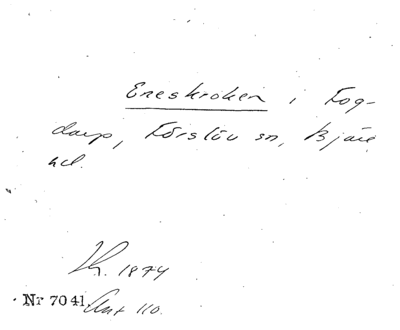 Eneskroken i Fog-
darp, Förslöv sn, Bjäre
hd.
Kr. 1874
Nr 7041. Ant 110.